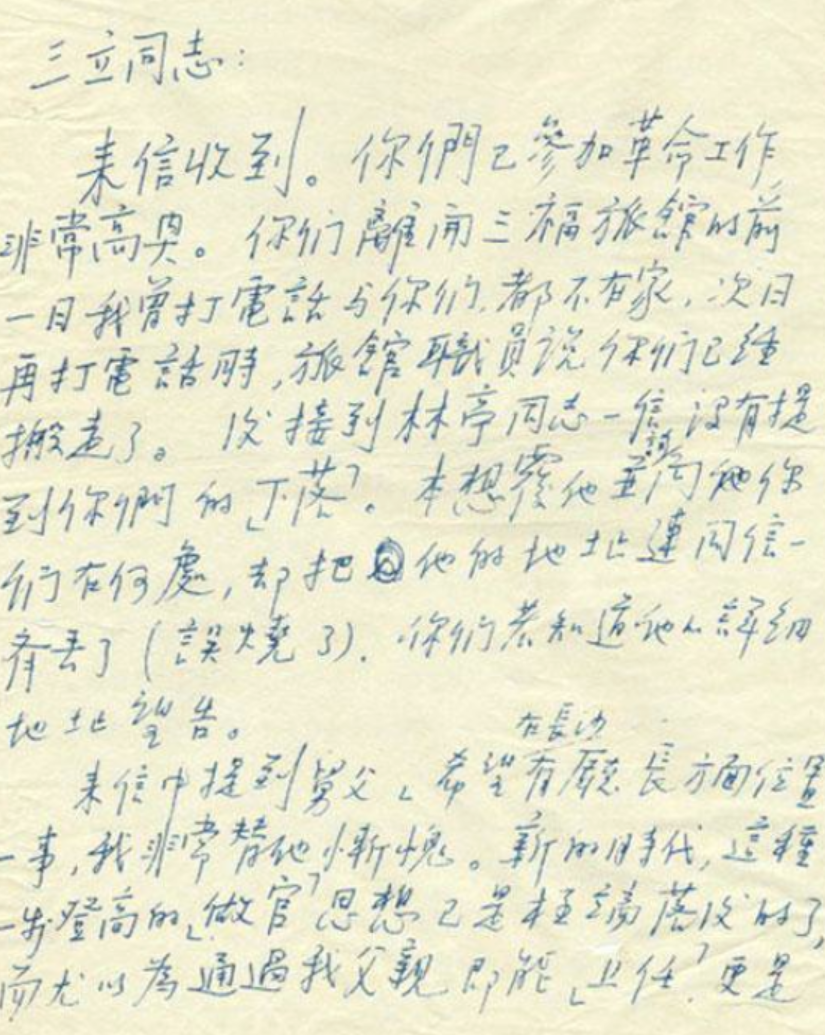 三立同志：
来信收到。你們已參加革命工作，
非常高兴。你们離開三福旅館的前
一日我曾打電話与你们，都不在家，次日
再打電話時，旅館職員说你们已経
搬走了。後接到林亭同志一信没有提
到你們的「下落」。本想覆他並询问他你
们在何處，却把他的地址連同信一
齊丢了（誤燒了）。你们若知道他的詳细
地址望告。
在長沙
来信中提到舅父「希望有厰長方面位置」
一事，我非常替他慚愧。新的時代，這種
一步登高的「做官」思想已是極端落後的了，
而尤以為通過我父親即能「上任」，更是